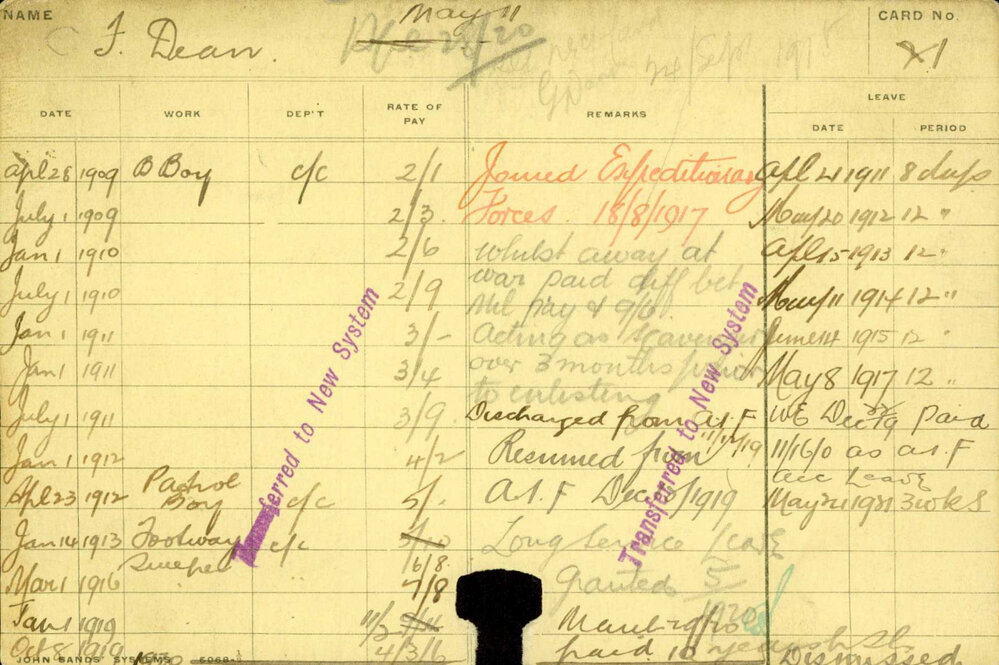 NAME
F. Dean.
May 11
CARD No.
X1
24/Sept 1918
DATE WORK DEP'T RATE OF PAY REMARKS LEAVE
DATE PERIOD
Apl 28 1909 B Boy c/c 2/1 Joined Expeditionary Apl 21 1911 8 days
July 1 1909 2/3 Forces. 18/8/1917 May 20 1912 12 "
Jan 1 1910 2/6 Whilst away at Apl 15 1913 12 "
July 1 1910 2/9 war paid diff bet May 11 1914 12 "
Mil pay & 9/6
Jan 1 1911 3/- Acting as Scavenger June 14 1915 12 "
Jan 1 1911 3/4 over 3 months prior May 8 1917 12 "
to enlisting
July 1 1911 3/9 Discharged from A.I.F WE Dec 19 paid
Jan 1 1912 4/2 Resumed from 11/16/0 as A.I.F
acc Leave
Apl 23 1912 Patrol Boy c/c 5/- A.I.F Dec 1919 May 21 1921 3 wks
Jan 14 1913 Footway Sweeper c/c Long Service Leave
6/8
Mar 1 1916 7/8 Granted 5
Jan 1 1919 March 1920
Oct 8 1919 paid 10 years
Dismissed
Transferred to New System
Transferred to New System
JOHN SANDS' SYSTEMS